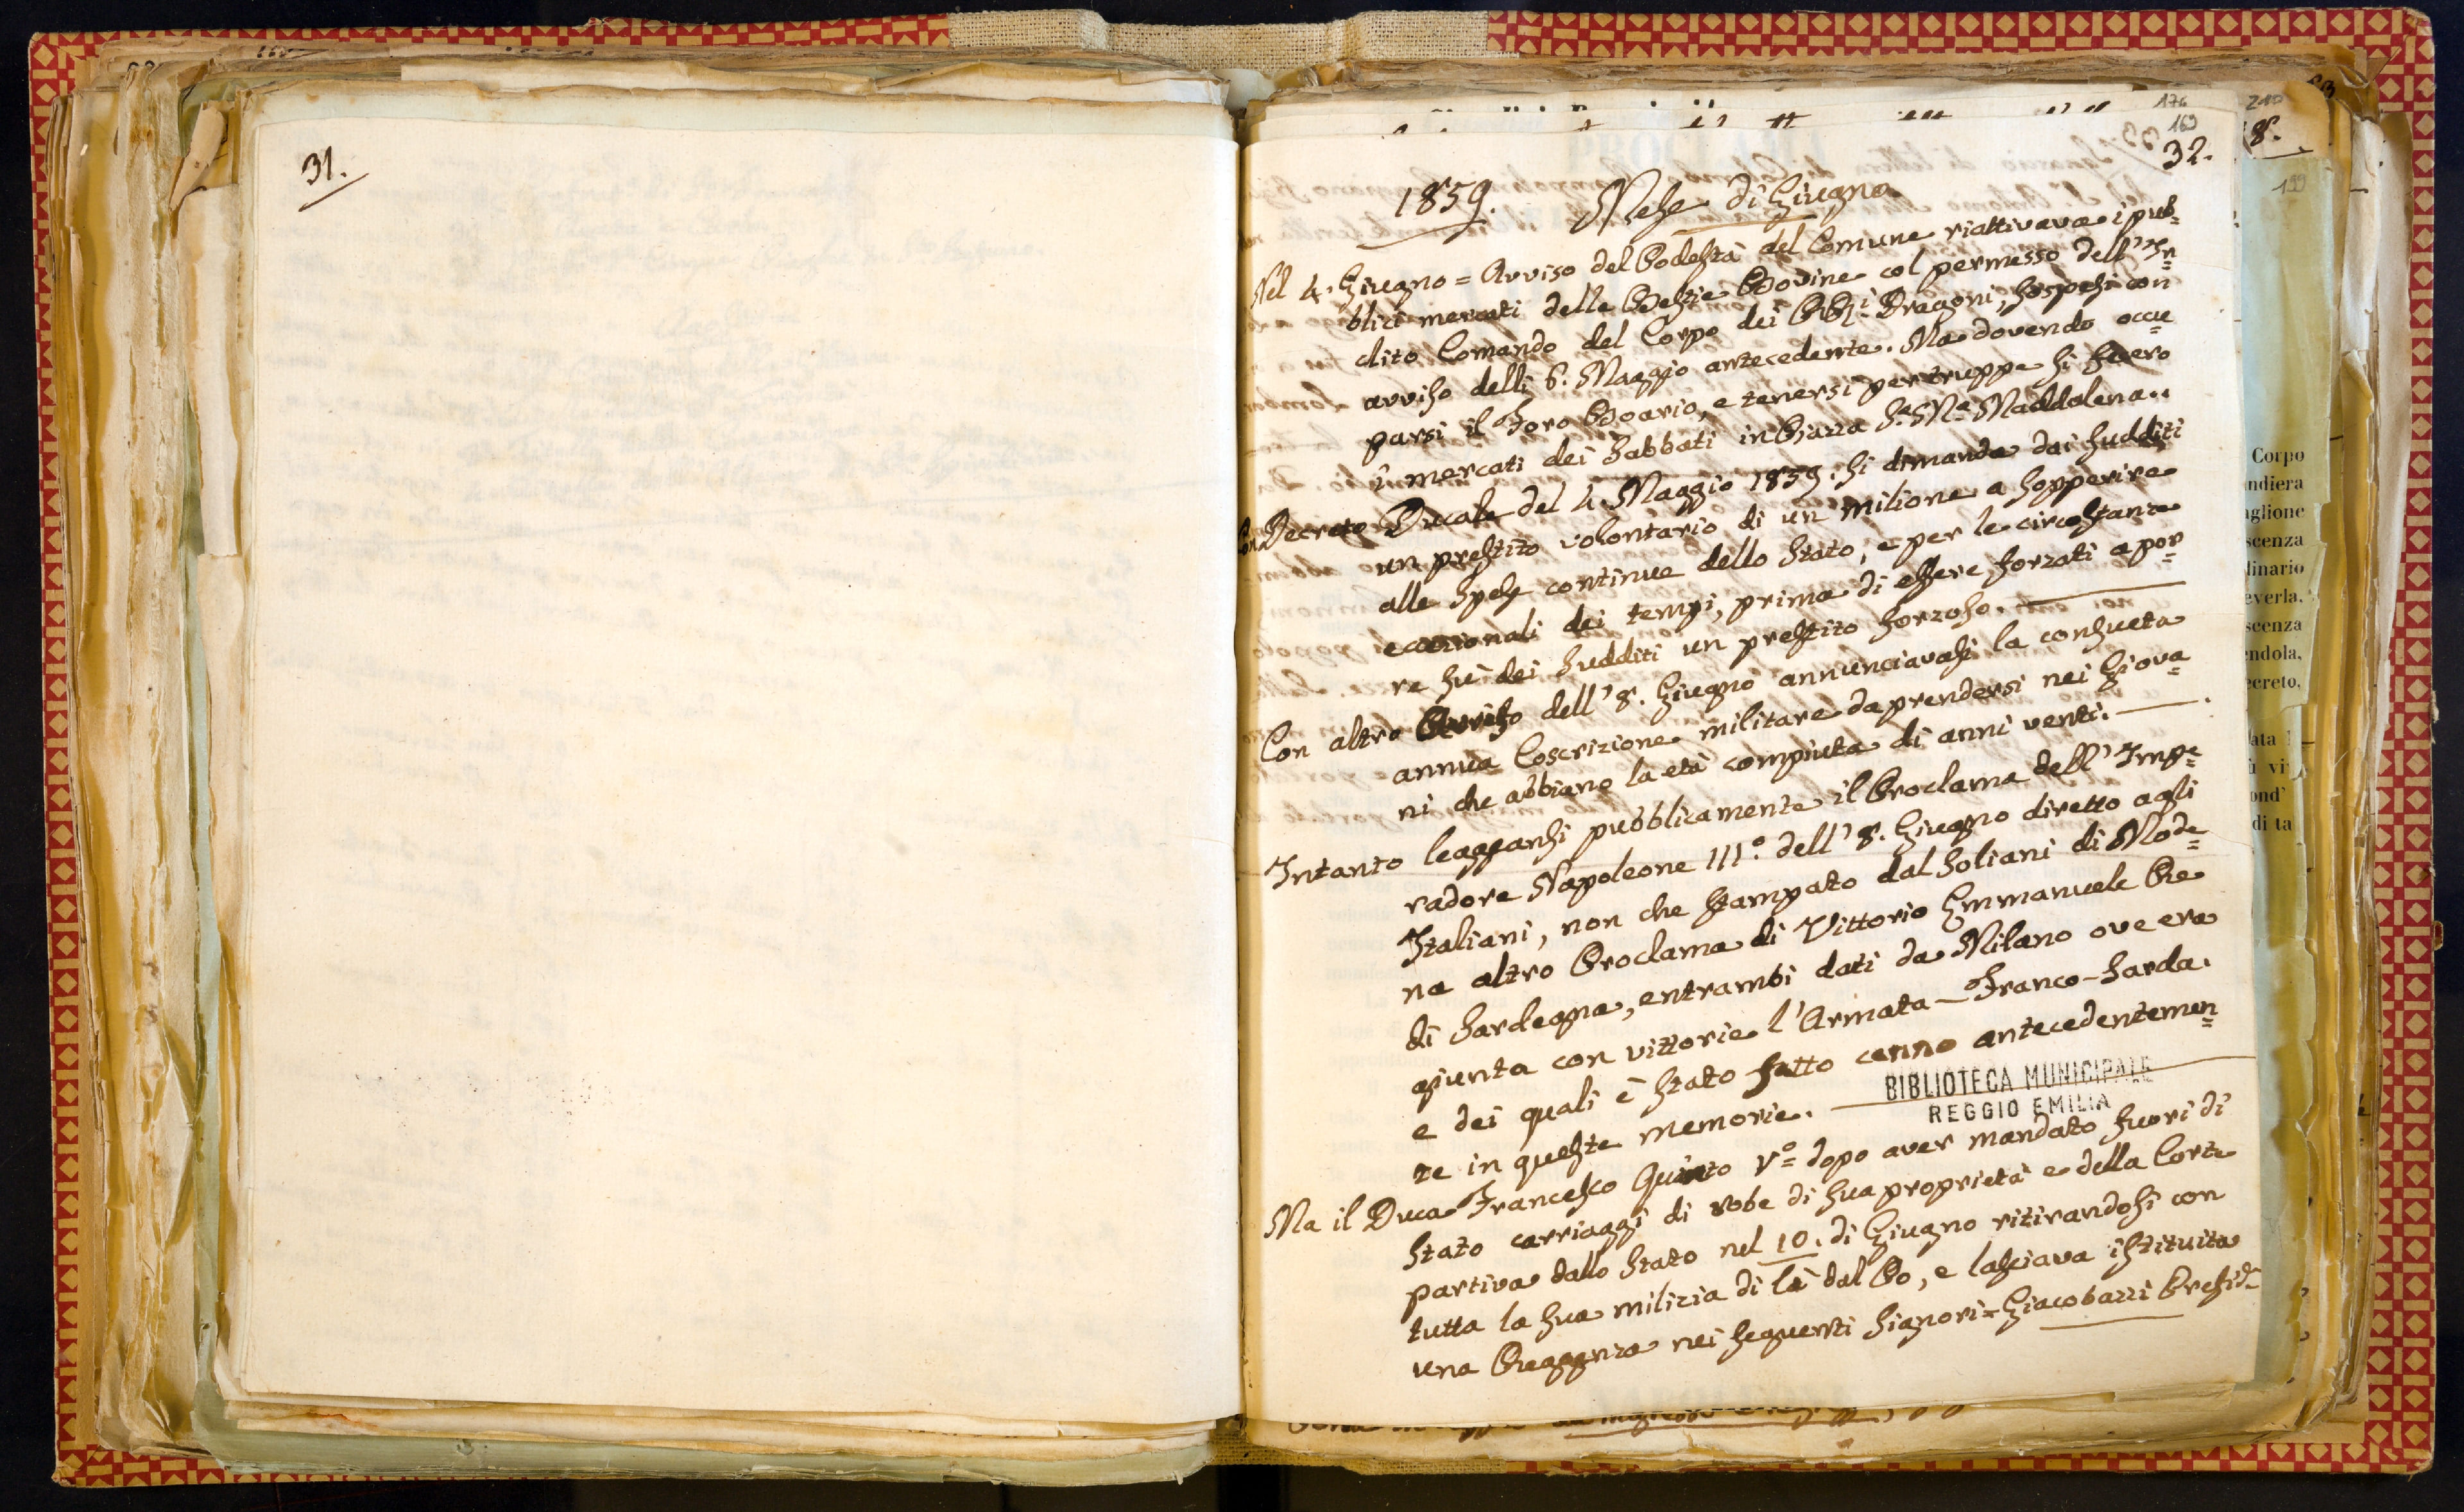 31.
176
169
32.
210
8.
199
1859. Mese di Giugno
Nel 4. Giugno = Avviso del Podestà del Comune riattivava i pub=
blici mercati delle Bestie Bovine col permesso dell'In=
clito Comando del Corpo dei RR.i Dragoni, sospesi con
avviso delli 6. Maggio antecedente. Ma dovendo occu=
parsi il Foro Boario, e tenersi per truppe si fecero
i mercati dei Sabbati in Piazza S.a M.a Maddalena..
Con Decreto Ducale del 4. Maggio 1859. si dimanda dai sudditi
un prestito volontario di un milione a sopperire
alle spese continue dello Stato, e per le circostanze
eccezionali dei tempi, prima di essere forzati a por=
re su dei sudditi un prestito forzoso.
Con altro Avviso dell'8. Giugno annunciavasi la consueta
annua Coscrizione militare da prendersi nei Giova=
ni che abbiano la età compiuta di anni venti.
Intanto leggeansi pubblicamente il Proclama dell'Impe=
radore Napoleone III.o dell'8. Giugno diretto agli
Italiani, non che stampato dal Soliani di Mode=
na altro Proclama di Vittorio Emmanuele Re
di Sardegna, entrambi dati da Milano ove era
giunta con vittorie l'Armata – Franco-Sarda.
e dei quali è stato fatto cenno antecedentemen=
te in queste memorie.
BIBLIOTECA MUNICIPALE
REGGIO EMILIA
Ma il Duca Francesco Quinto V.o dopo aver mandato fuori di
Stato carriaggi di robe di sua proprietà e della Corte
partiva dallo Stato nel 10. di Giugno ritirandosi con
tutta la sua milizia di là dal Po, e lasciava istituita
una Reggenza nei seguenti Signori = Giacobazzi Presid.
Corpo
ndiera
aglione
scenza
dinario
everla.
scenza
endola,
ecreto,
ond'
di ta